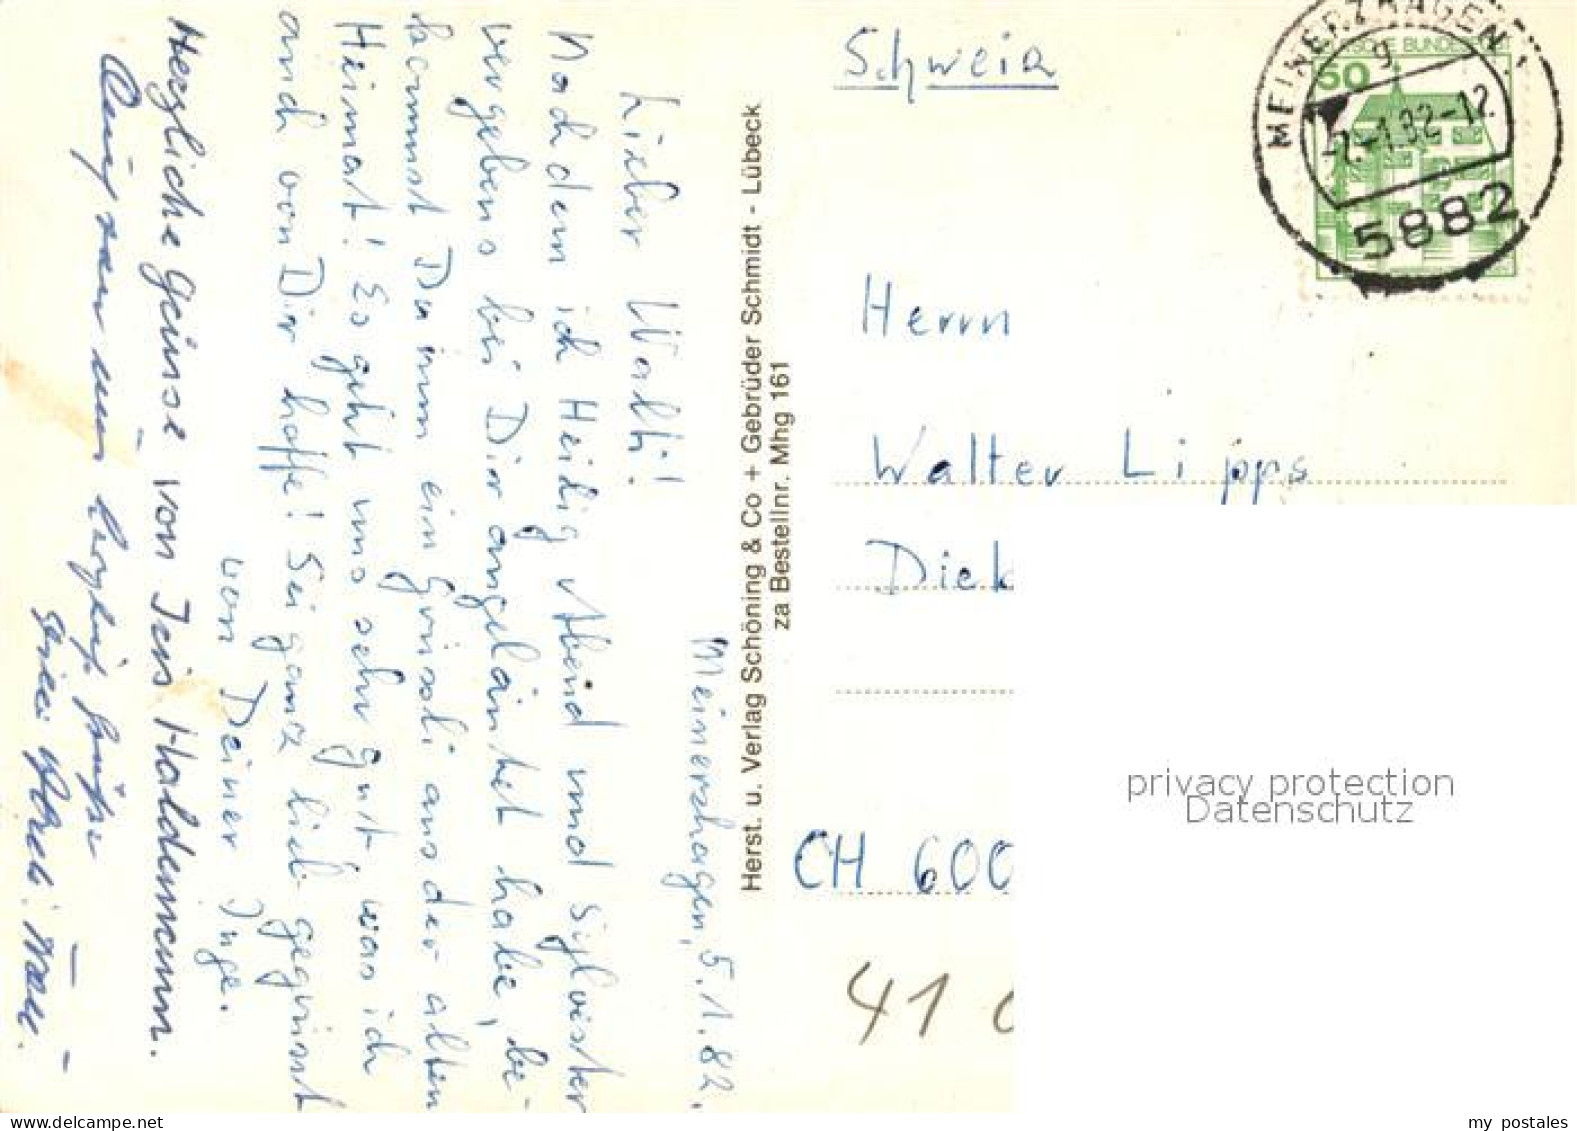 Meinerzhagen, 5.1.82.
Lieber Walti!
Nachdem ich Heilig Abend und Sylvester
vergebens bei Dir angeläutet habe, be-
kommst Du nun ein Grüssli aus der alten
Heimat! Es geht uns sehr gut, was ich
auch von Dir hoffe! Sei ganz lieb gegrüsst
von Deiner Inge.
Herzliche Grüsse von Iris Haldemann.
von mir herzliche Grüße
Herst. u. Verlag Schöning & Co + Gebrüder Schmidt - Lübeck
za Bestellnr. Mhg 161
Schweiz
MEINERZHAGEN 1
g
-7.-1.82-12
5882
DEUTSCHE BUNDESPOST
50
Herrn
Walter Lipps
Diek
CH 600
41
privacy protection
Datenschutz
delcampe.net
my_postales